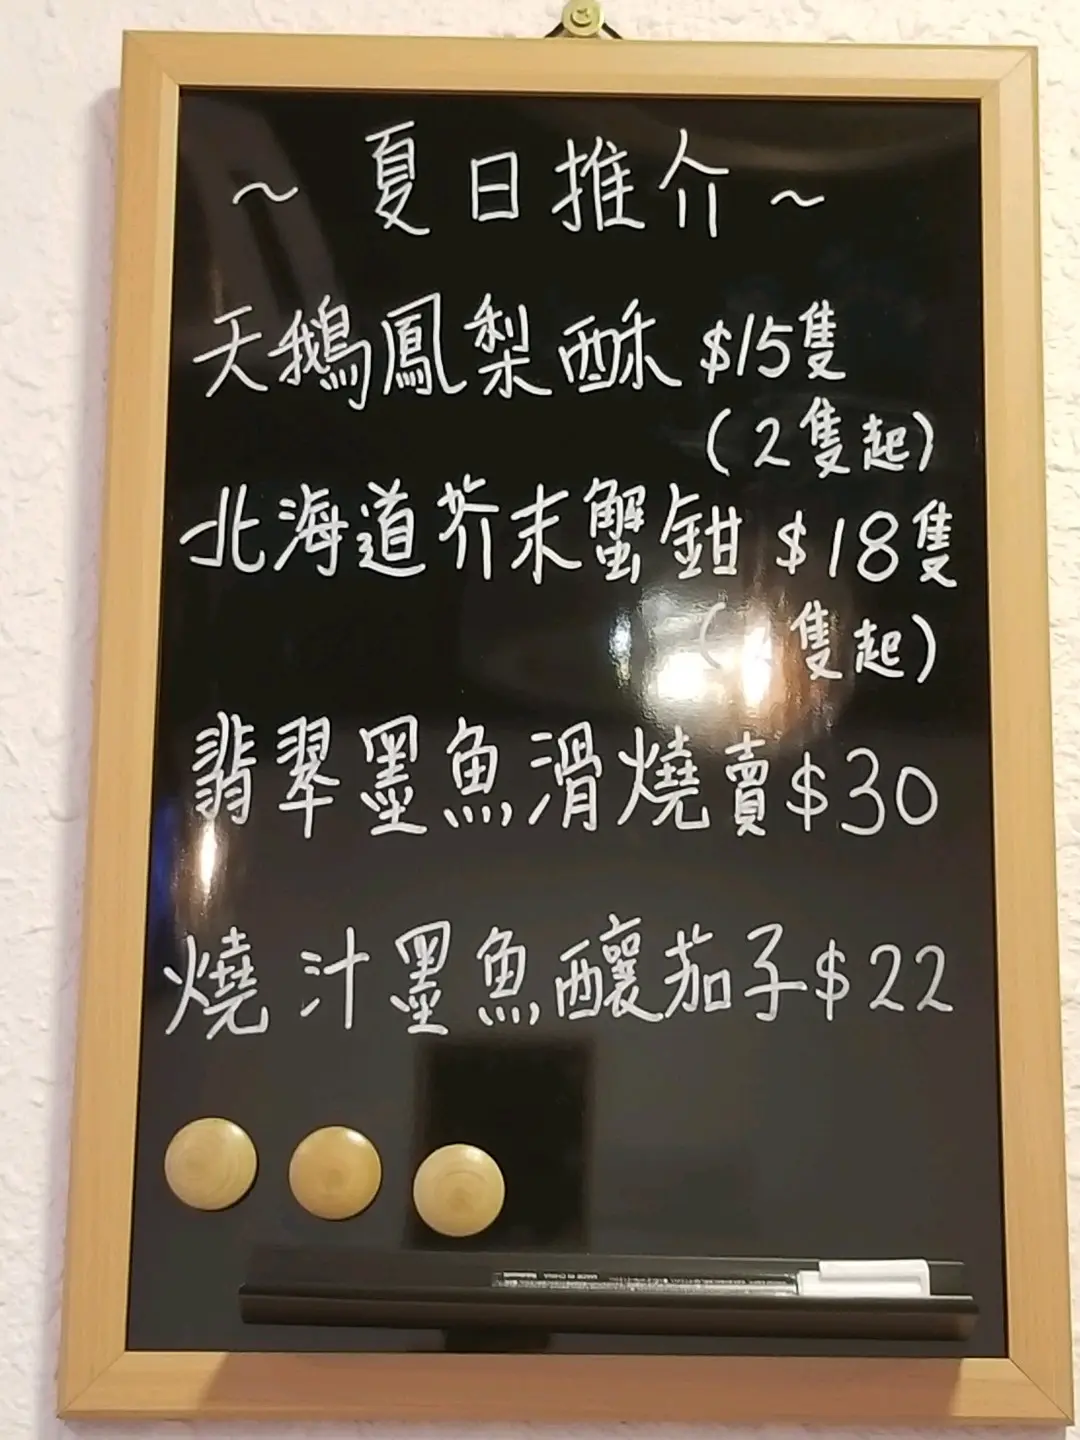 ~ 夏日推介 ~
天鵝鳳梨酥 $15隻
(2隻起)
北海道芥末蟹鉗 $18隻
( 隻起)
翡翠墨魚滑燒賣$30
燒汁墨魚釀茄子$22
MADE IN CHINA